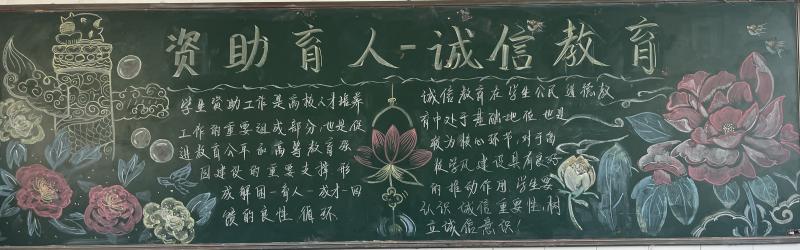 资助育人-诚信教育
学生资助工作是高校人才培养
工作的重要组成部分,也是促
进教育公平和高等教育强
国建设的重要支撑,形
成解困-育人-成才-回
馈的良性循环
诚信教育在学生公民道德教
育中处于基础地位,也是
较为核心环节,对于高
校学风建设具有良好
的推动作用,学生要
认识诚信重要性,树
立诚信意识!